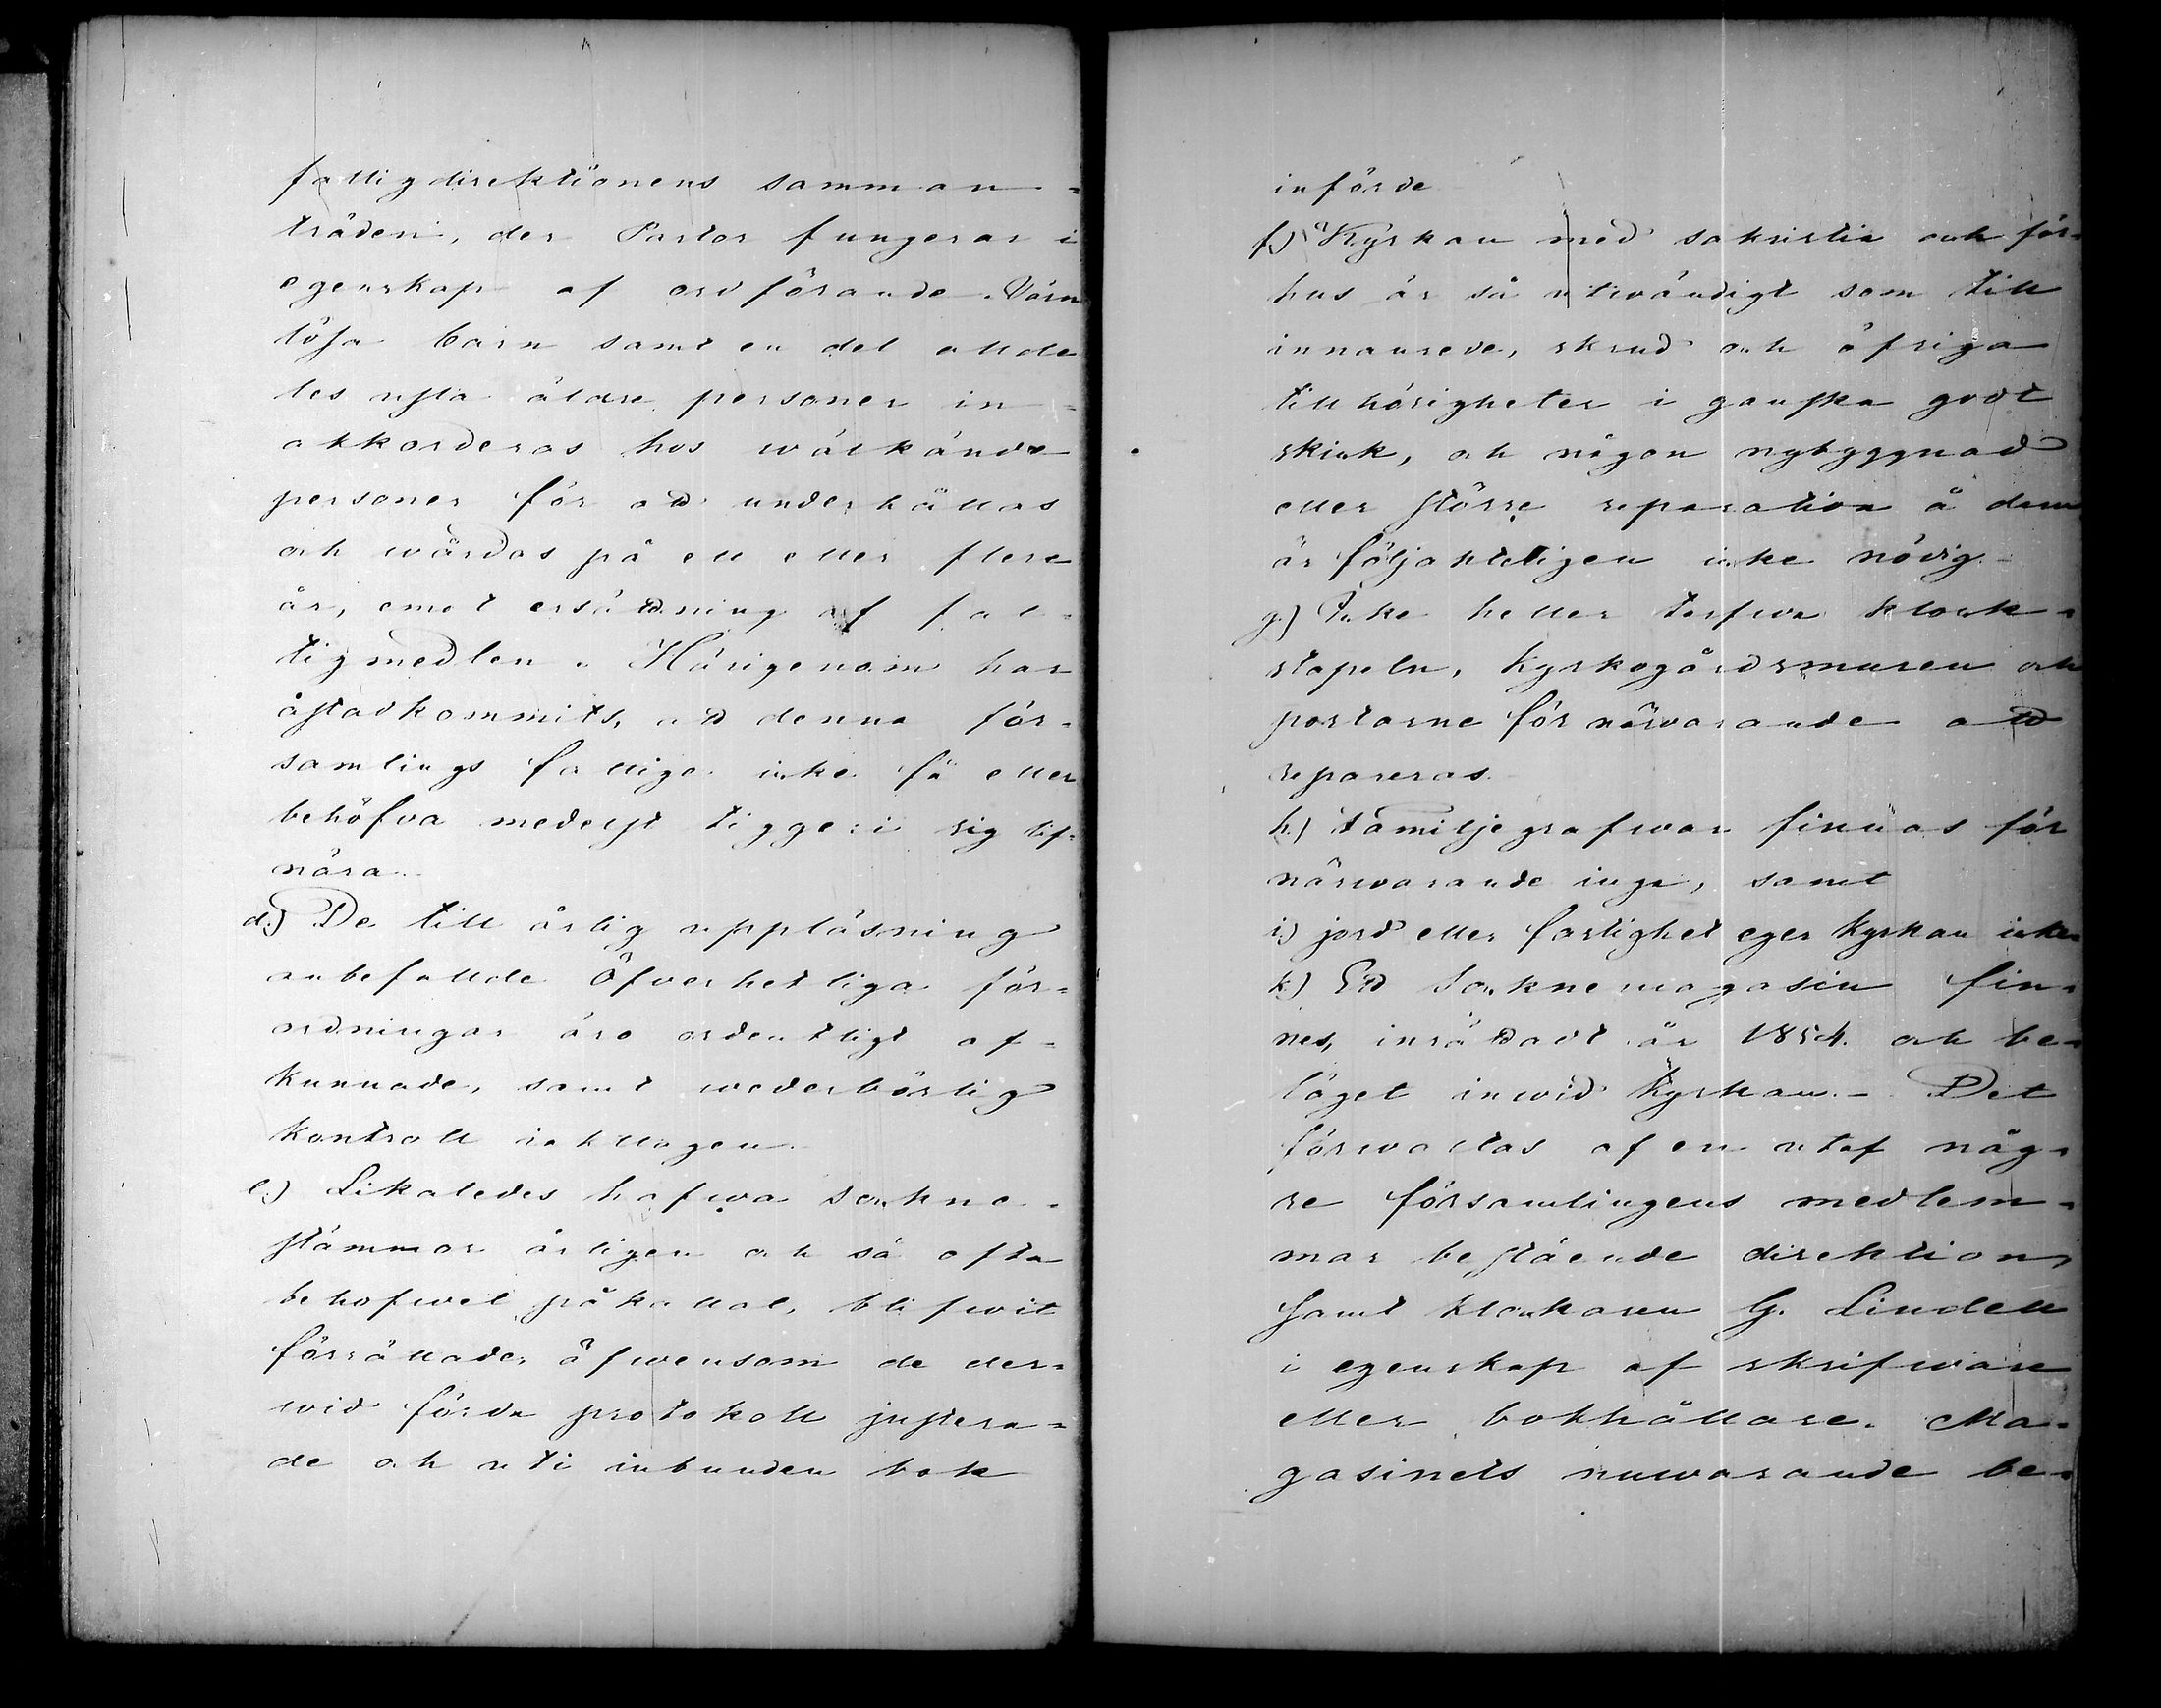 fattigdirektionens samman-
träden, der Pastor fungerar i
egenskap af ordförande. Värn
lösa barn samt en del allde
les usla äldre personer in-
akkorderas hos wälkände
personer för att underhållas
och wårdas på ett eller flere
år, emot ersättning af fat-
tigmedlen. Härigenom har
åstadkommits, att denna för-
samlings fattige icke få eller
behöfva medelst tiggeri sig lif-
nära.
d.) De till årlig uppläsning
anbefallde Öfverhetliga för-
ordningar äro ordentligt af-
kunnade, samt wederbörlig
kontroll iakttagen.
e.) Likaledes hafwa sockne-
stämmor årligen och så ofta
behofwet påkallat, blifwit
förrättade, äfwensom de der-
wid förda protokoll justera-
de och uti inbunden bok
införde
f.) Kyrkan med sakristia och för-
hus är så utwändigt som till
innanrede, skrud och öfriga
tillhörigheter i ganska godt
skick, och någon nybyggnad
eller större reparation å dem
är följaktligen icke nödig.-
g.) Icke heller torfwa klock-
stapeln, kyrkogårdsmuren och
portarne för närvarande att
repareras.
h.) Familjegrafwar finnas för
närwarande inga, samt
i.) jord eller fastighet eger kyrkan icke
k.) Ett Socknemagasin fin-
nes, inrättadt år 1854. och be-
läget inwid kyrkan.- Det
förwaltas af en utaf någ-
re församlingens medlem-
mar bestående direktion,
samt klockaren G. Lindell
i egenskap af skrifware
eller bokhållare. Ma-
gasinets nuwarande be-